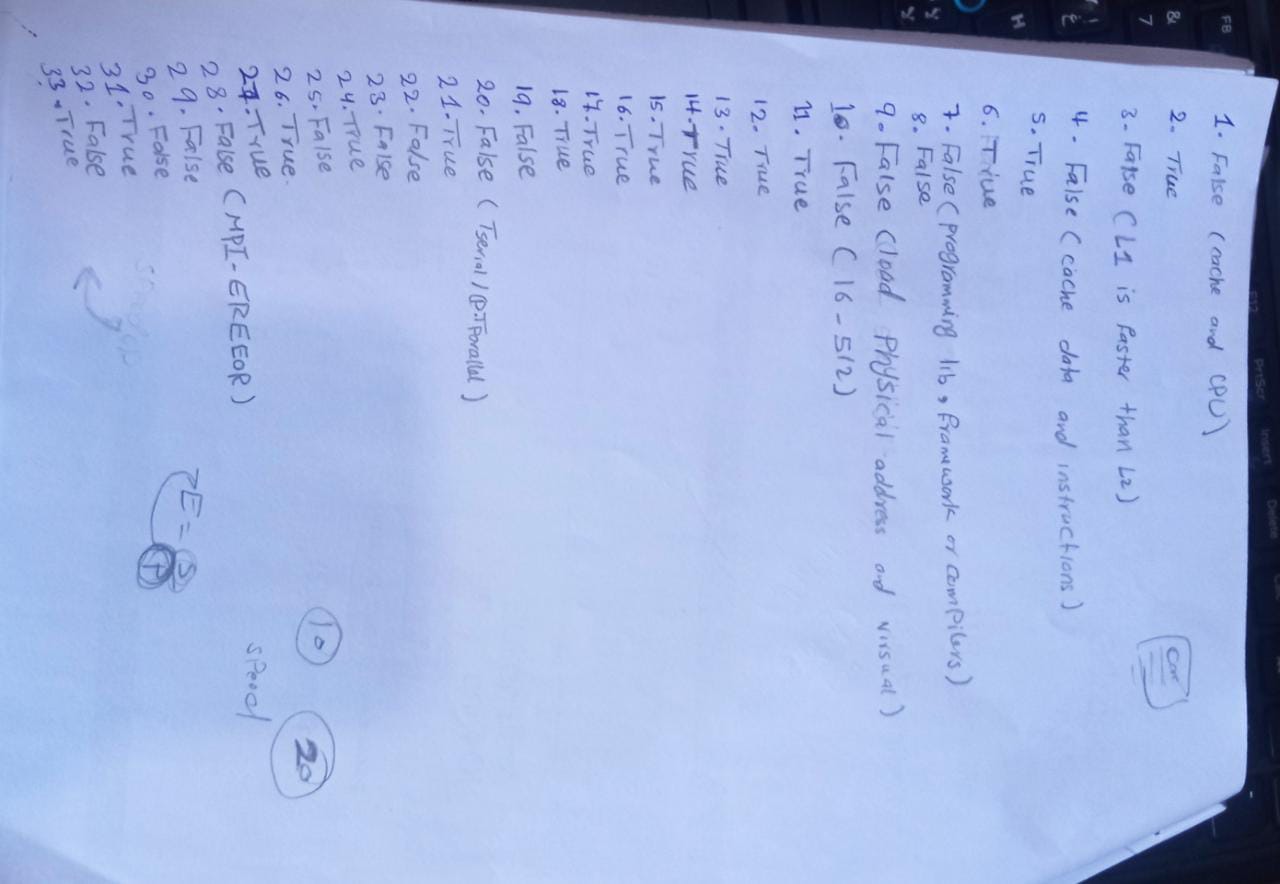 F8
F12
PrtScr
Insert
Delete
&
7
H
1. False (cache and CPU)
2. True
Cor
3. False (L1 is faster than L2)
4. False (cache data and instructions)
5. True
6. True
7. False (programming lib, framework or compilers)
8. False
9. False (load Physical address and virsual)
10. False (16 - 512)
11. True
12. True
13. True
14. True
15. True
16. True
17. True
18. True
19. False
20. False (Tserial / P.TParallel)
21. True
22. False
23. False
24. True
25. False
10
20
26. True.
27. True
speed
28. False (MPI-EREEOR)
29. False
E = S
P
30. False
31. True
32. False
33. True